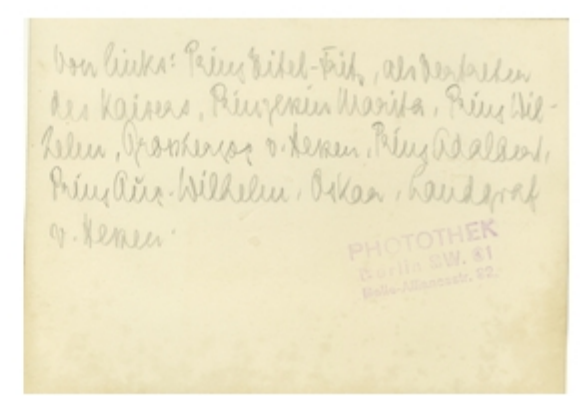 von links: Prinz Eitel-Fritz, als Vertreter
des Kaisers, Prinzessin Marita, Prinz Wil-
helm, Grossherzog v. Hessen, Prinz Adalbert,
Prinz Aug. Wilhelm, Oskar, Landgraf
v. Hessen.
PHOTOTHEK
Berlin SW. 61
Belle-Alliancestr. 92.